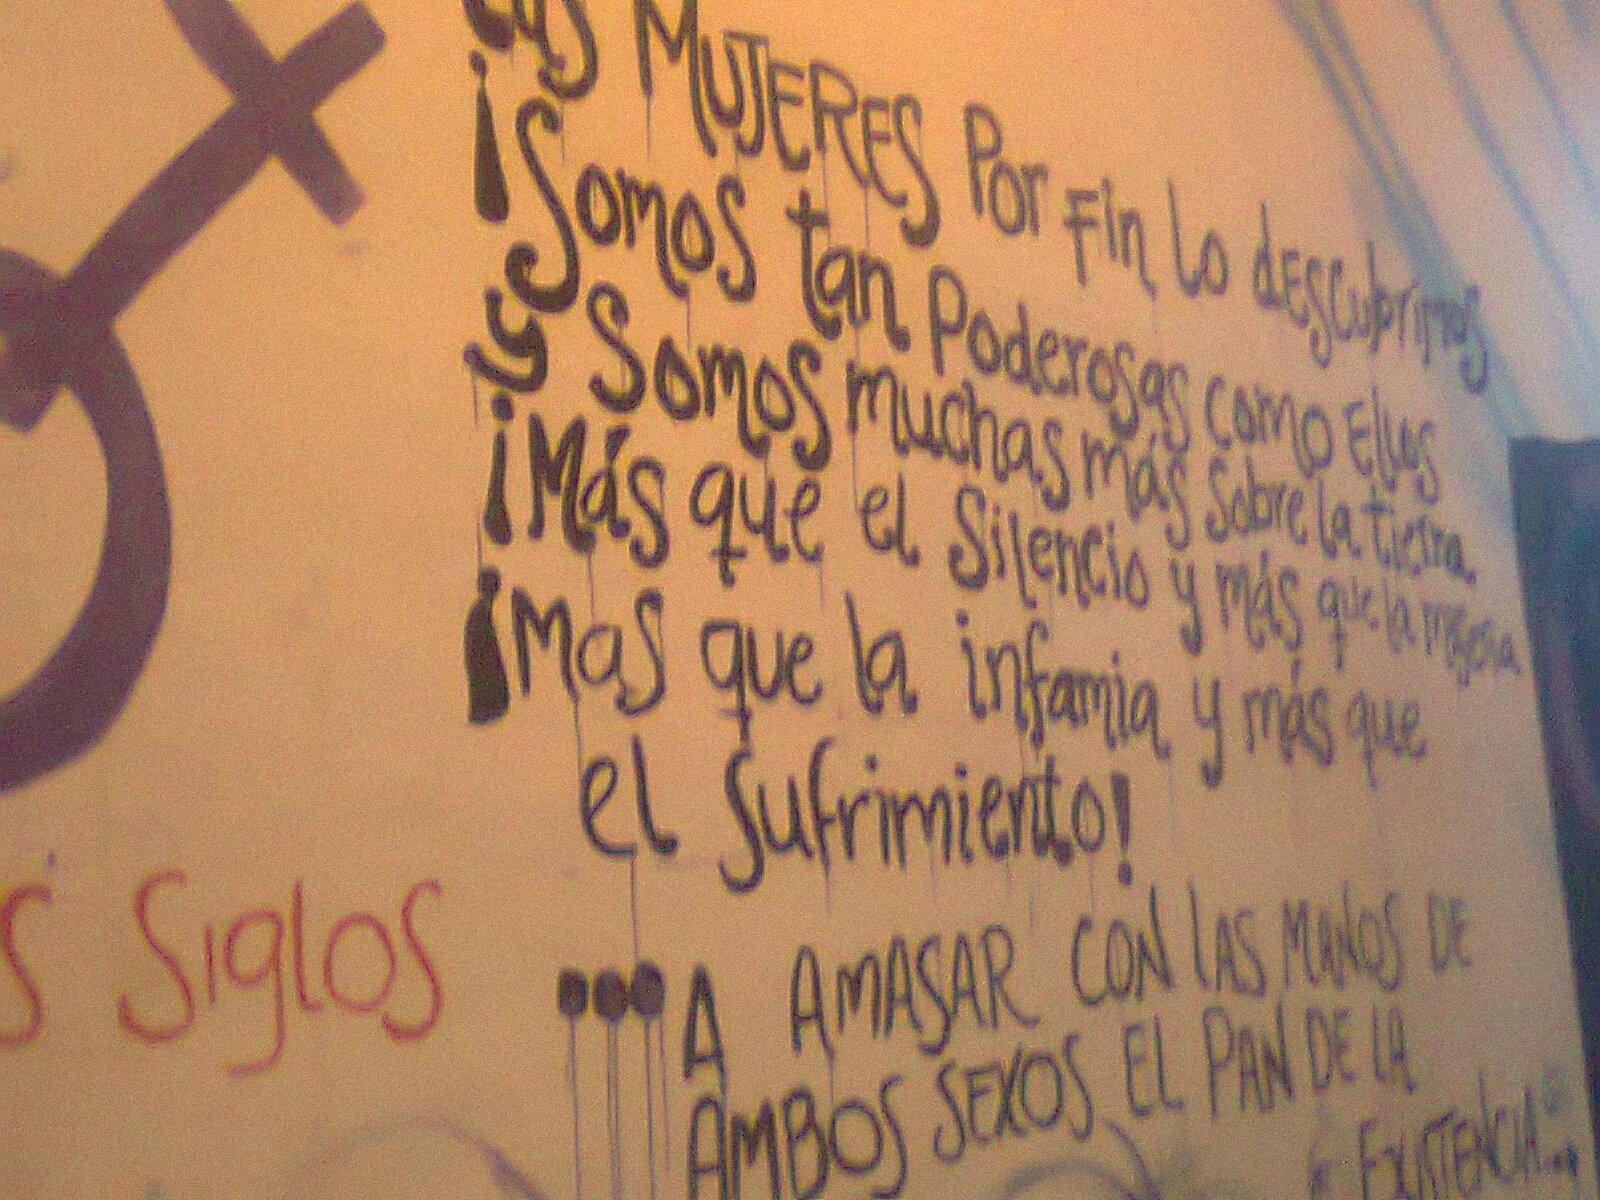 Las MUJERES Por Fin lo dEScubrimos
¡Somos tan Poderosas como Ellos
y Somos muchas más Sobre la tierra
¡Más que el Silencio y más que la miseria
¡Mas que la infamia y más que
el sufrimiento!
S SiglOS
... A AMASAR CON LAS MANOS DE
AMBOS SEXOS EL PAN DE LA
EXISTENCIA...